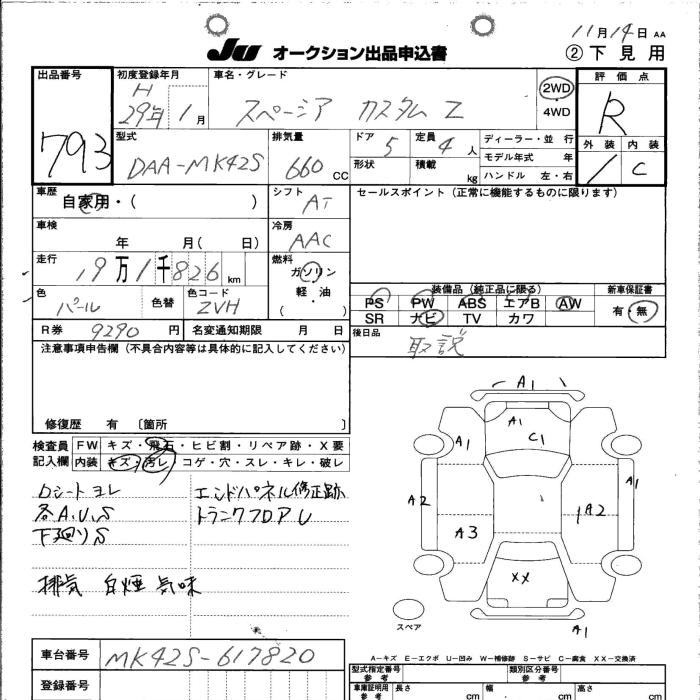 11月14日 AA
JU オークション出品申込書
② 下見用
出品番号
793
初度登録年月
H
29年 1月
車名・グレード
スペーシア カスタム Z
2WD
4WD
評価点
R
外装 内装
1 C
型式
DAA-MK42S
排気量
660 CC
ドア 5
定員 4 人
形状
積載 kg
ディーラー・並行
モデル年式 年
ハンドル 左・右
車歴
自家用・( )
シフト
AT
セールスポイント(正常に機能するものに限ります)
車検
年 月( 日)
冷房
AAC
走行
19万1千826km
燃料
ガソリン
軽・油
( )
色
パール
色替
色コード
ZVH
装備品(純正品に限る)
PS PW ABS エアB AW
SR ナビ TV カワ
新車保証書
有・無
R券 9290円
名変通知期限 月 日
後日品
取説
注意事項申告欄(不具合内容等は具体的に記入してください)
修復歴 有 〔箇所 〕
検査員
記入欄
FW キズ・飛石・ヒビ割・リペア跡・X要
内装 キズ・汚レ・コゲ・穴・スレ・キレ・破レ
シートヨレ
各A.U.S
下廻りS
排気 白煙 気味
エンドパネル修正跡
トランクフロアU
A1
A1
C1
A1
A1
A2
A2
A3
XX
A1
スペア
A-キズ E-エクボ U-凹み W-補修跡 S-サビ C-腐食 XX-交換済
車台番号
MK42S-617820
登録番号
型式指定番号
参考
類別区分番号
参考
車庫証明用
参考
長さ cm
幅 cm
高さ cm